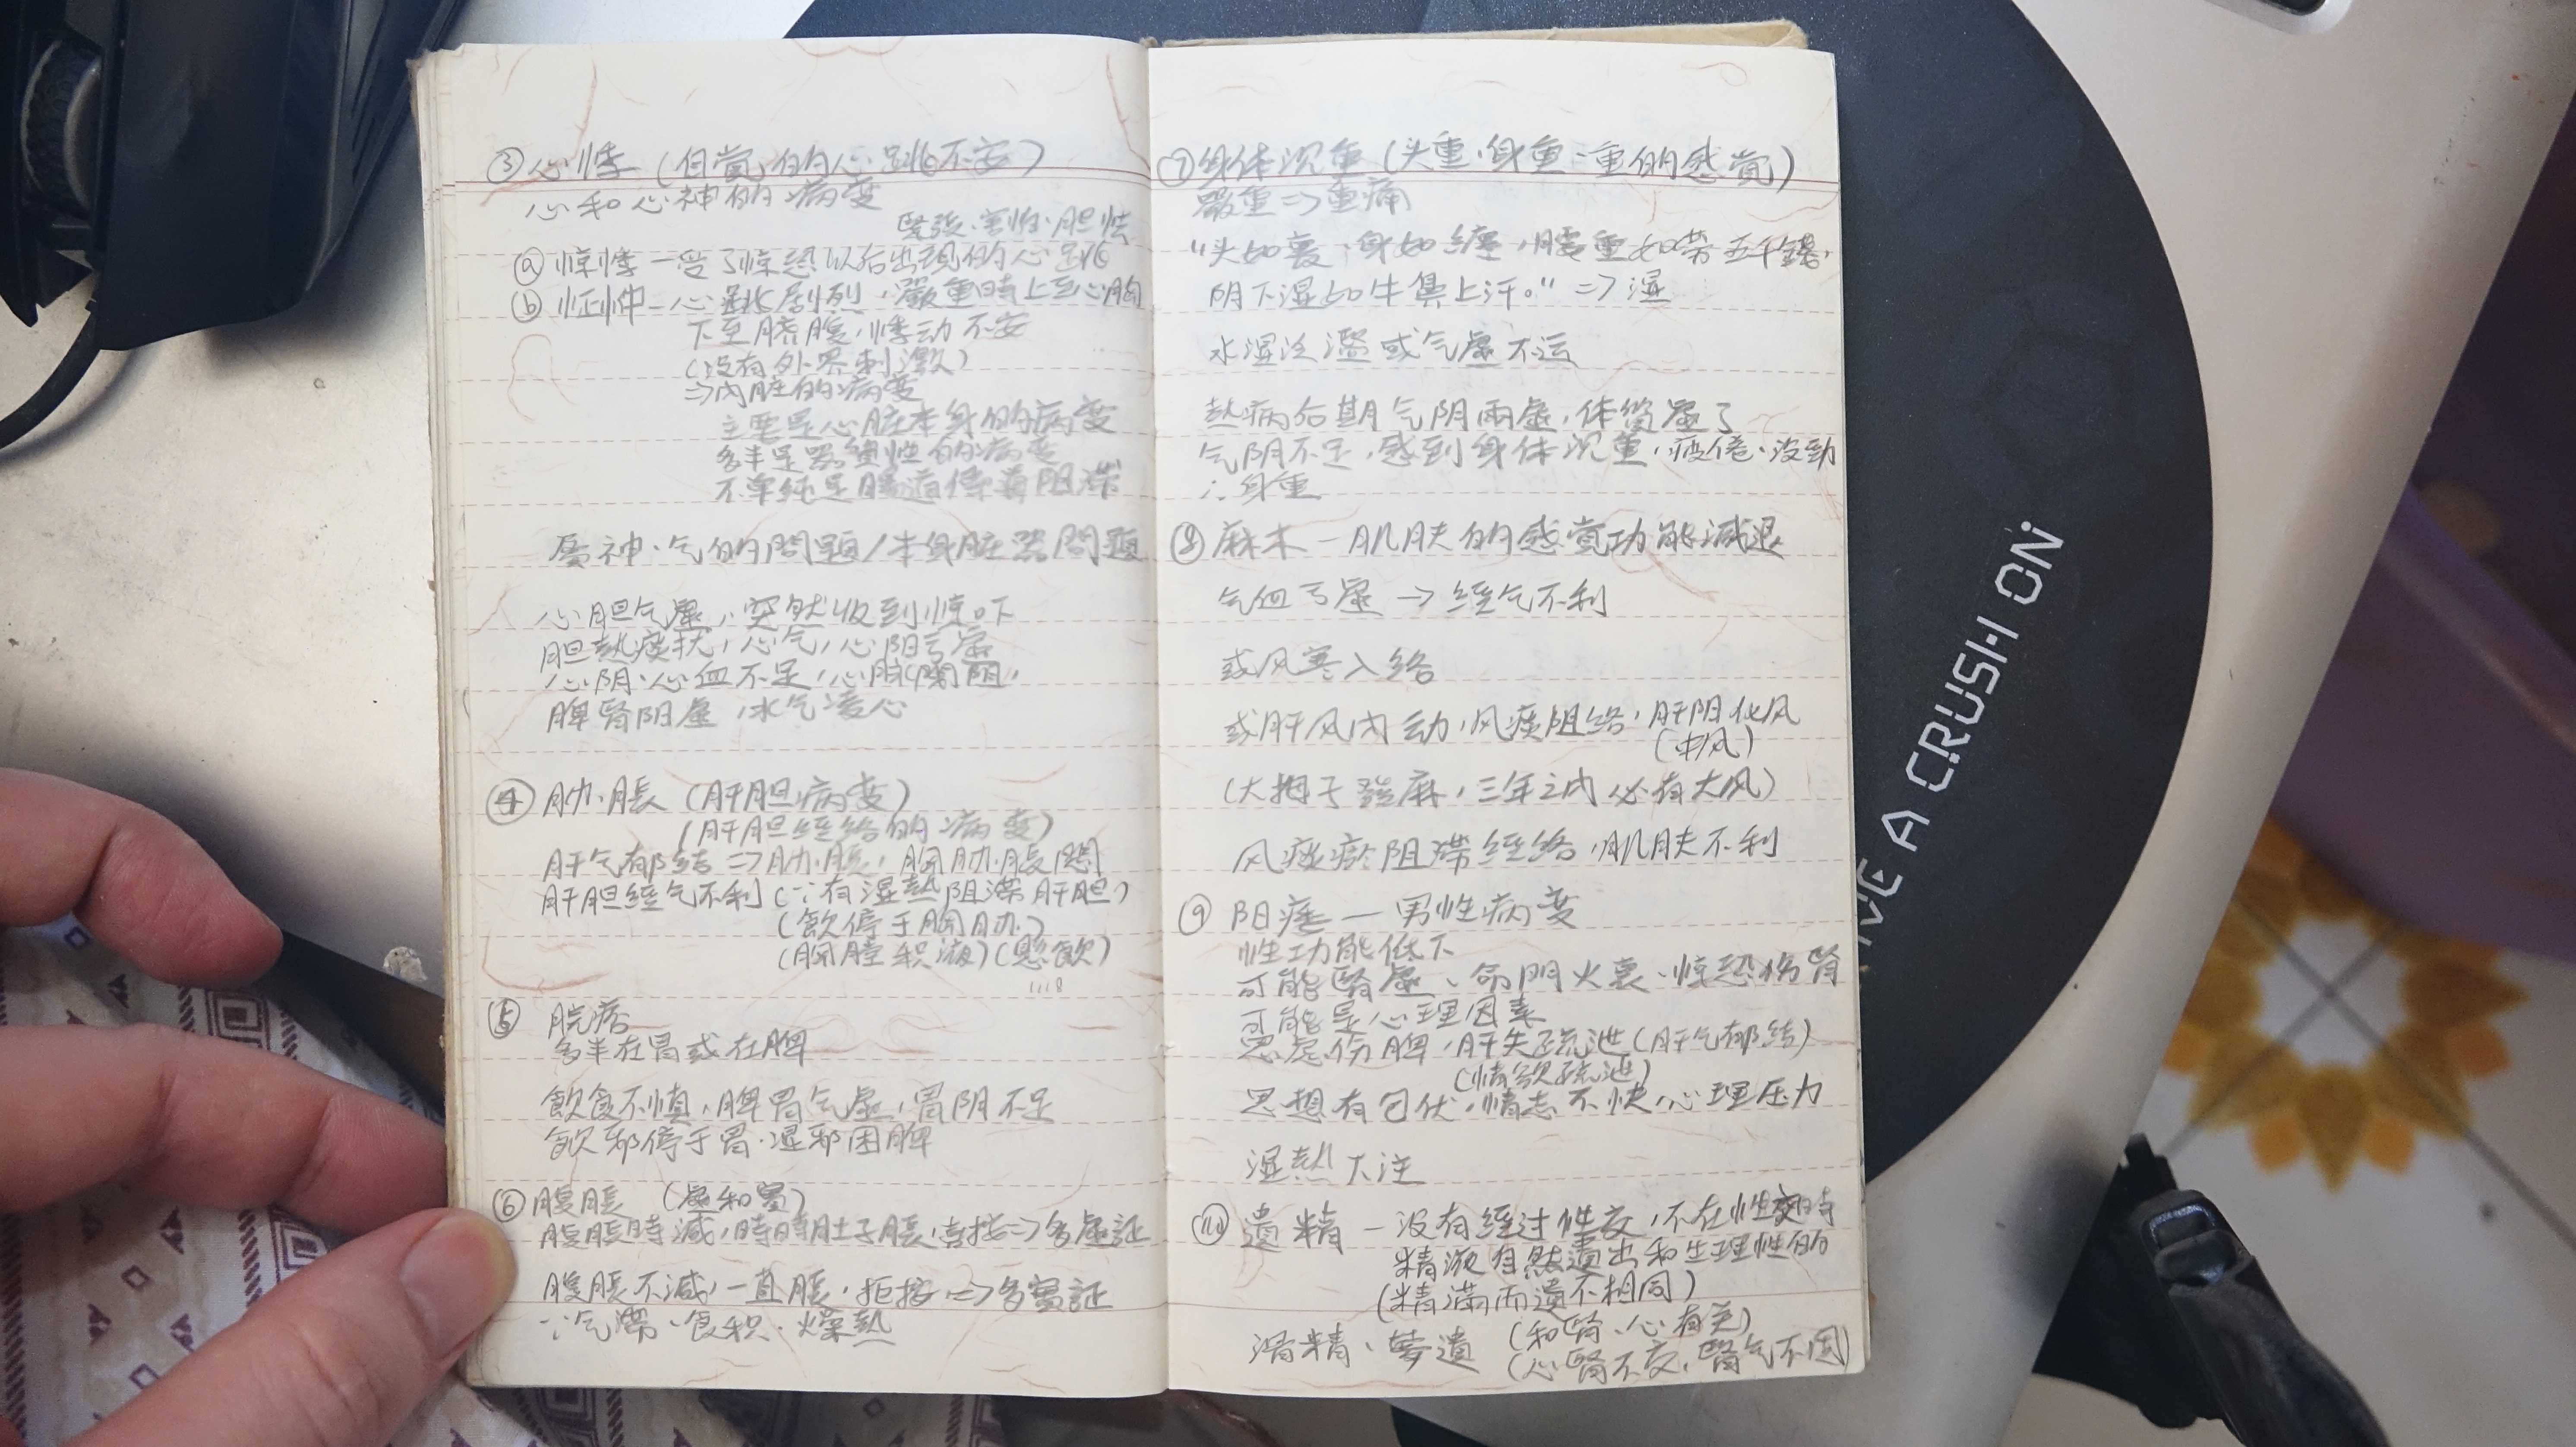 ③ 心悸 (自觉的心跳不安)
心和心神的病变
緊張、害怕、胆怯
ⓐ 惊悸 — 受了惊恐以后出现的心跳
ⓑ 怔忡 — 心跳剧烈，嚴重時上至心胸
下至臍腹，悸动不安
(没有外界刺激)
⇒内脏的病变
主要是心脏本身的病变
多半是器質性的病变
不单纯是
屬神、气的問題/本身脏器問題
心胆气虛，突然收到惊吓
胆熱痰扰，心气，心阳亏虛
心阴、心血不足，心脉闭阻，
脾腎阳虛，水气凌心
④ 肋胀 (肝胆病变)
(肝胆經络的病变)
肝气郁結⇒肋胀，胸肋胀悶
肝胆經气不利 (∵有湿熱阻滞肝胆)
(飲停于胸肋)
(胸腔积液) (懸飲)
⑤ 脘痞
多半在胃或在脾
飲食不慎，脾胃气虛，胃阴不足
飲邪停于胃、湿邪困脾
⑥ 腹脹 (虛和實)
腹脹時減，時時肚子脹，喜按⇒多虛証
腹脹不減，一直脹，拒按⇒多實証
∵气滞、食积、燥熱
⑦ 身体沉重 (头重、身重 = 重的感觉)
嚴重⇒重痛
“头如裹，身如纏，腰重如带五千錢，
阴下湿如牛鼻上汗。” ⇒ 湿
水湿泛濫或气虛不运
熱病后期气阴兩虛，体質虛了
气阴不足，感到身体沉重，疲倦、没劲
∴身重
⑧ 麻木 — 肌肤的感觉功能減退
气血亏虛 → 經气不利
或风寒入络
或肝风内动，风痰阻络，肝阳化风
(中风)
(大拇子發麻，三年之内必有大风)
风痰瘀阻滞經络，肌肤不利
⑨ 阳痿 — 男性病变
性功能低下
可能腎虛、命門火衰、惊恐伤腎
可能是心理因素
思虑伤脾，肝失疏泄 (肝气郁結)
(情欲疏泄)
思想有包伏，情志不快，心理压力
湿熱下注
⑩ 遺精 — 没有經过性交，不在性交時
精液自然遺出和生理性的
(精滿而遺不相同)
滑精、夢遺 (和腎、心有关)
(心腎不交，腎气不固)
VE A CRUSH ON